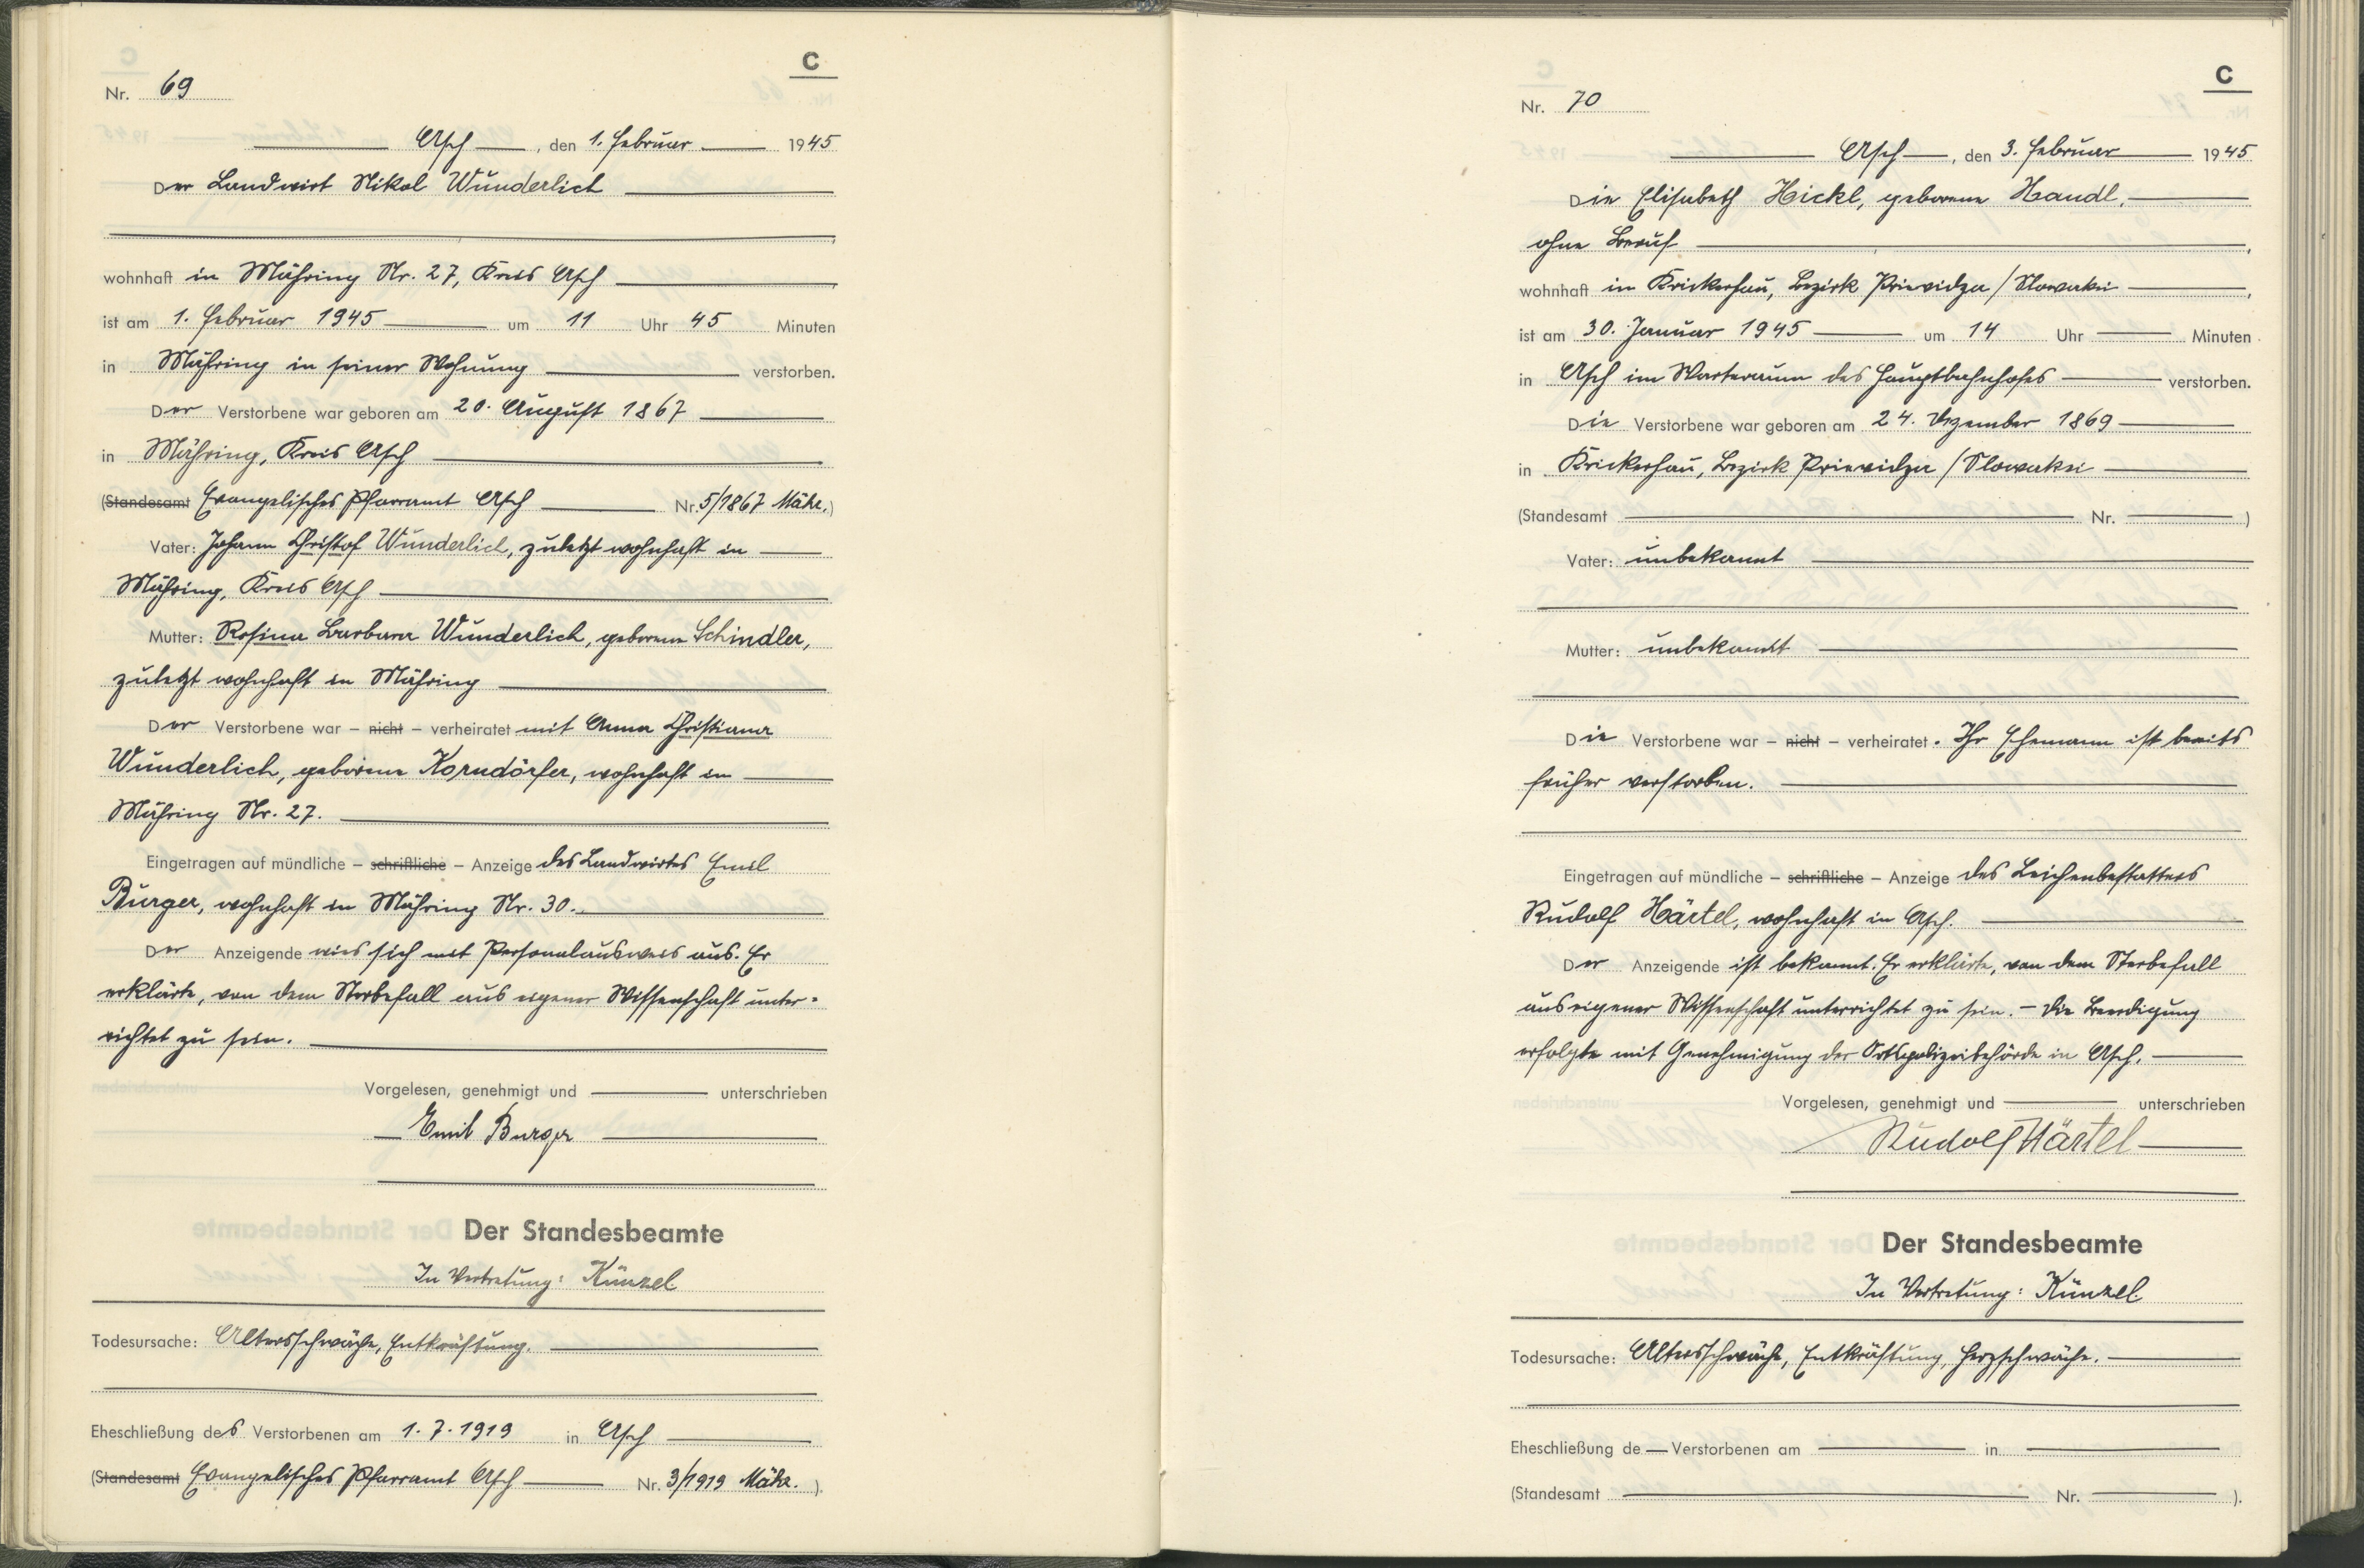 C
Nr. 69
Asch, den 1. Februar 1945
Der Landwirt Nikol Wunderlich
wohnhaft in Mähring Nr. 27, Kreis Asch,
ist am 1. Februar 1945 um 11 Uhr 45 Minuten
in Mähring in seiner Wohnung verstorben.
Der Verstorbene war geboren am 20. August 1867
in Mähring, Kreis Asch
(Standesamt Evangelisches Pfarramt Asch Nr. 5/1867 Mähr.)
Vater: Johann Christof Wunderlich, zuletzt wohnhaft in
Mähring, Kreis Asch
Mutter: Rosina Barbara Wunderlich, geborene Schindler,
zuletzt wohnhaft in Mähring
Der Verstorbene war – nicht – verheiratet mit Anna Christiana
Wunderlich, geborene Korndörfer, wohnhaft in
Mähring Nr. 27.
Eingetragen auf mündliche – schriftliche – Anzeige des Landwirtes Emil
Burger, wohnhaft in Mähring Nr. 30.
Der Anzeigende wies sich mit Personalausweis aus. Er
erklärte, von dem Sterbefall aus eigener Wissenschaft unter=
richtet zu sein.
Vorgelesen, genehmigt und unterschrieben
Emil Burger
Der Standesbeamte
In Vertretung: Künzel.
Todesursache: Altersschwäche, Entkräftung.
Eheschließung des Verstorbenen am 1. 7. 1919 in Asch
(Standesamt Evangelisches Pfarramt Asch Nr. 3/1919 Mähr. ).
C
Nr. 70
Asch, den 3. Februar 1945
Die Elisabeth Hickl, geborene Handl,
ohne Beruf,
wohnhaft in Krickerhau, Bezirk Priewidza / Slowakei,
ist am 30. Januar 1945 um 14 Uhr Minuten
in Asch im Warteraum des Hauptbahnhofes verstorben.
Die Verstorbene war geboren am 24. Dezember 1869
in Krickerhau, Bezirk Priewidza / Slowakei
(Standesamt Nr. )
Vater: unbekannt
Mutter: unbekannt
Die Verstorbene war – nicht – verheiratet. Ihr Ehemann ist bereits
früher verstorben.
Eingetragen auf mündliche – schriftliche – Anzeige des Leichenbestatters
Rudolf Härtel, wohnhaft in Asch.
Der Anzeigende ist bekannt. Er erklärte, von dem Sterbefall
aus eigener Wissenschaft unterrichtet zu sein. – Die Beerdigung
erfolgte mit Genehmigung der Ortspolizeibehörde in Asch.
Vorgelesen, genehmigt und unterschrieben
Rudolf Härtel
Der Standesbeamte
In Vertretung: Künzel.
Todesursache: Altersschwäche, Entkräftung, Herzschwäche.
Eheschließung de Verstorbenen am in
(Standesamt Nr. ).